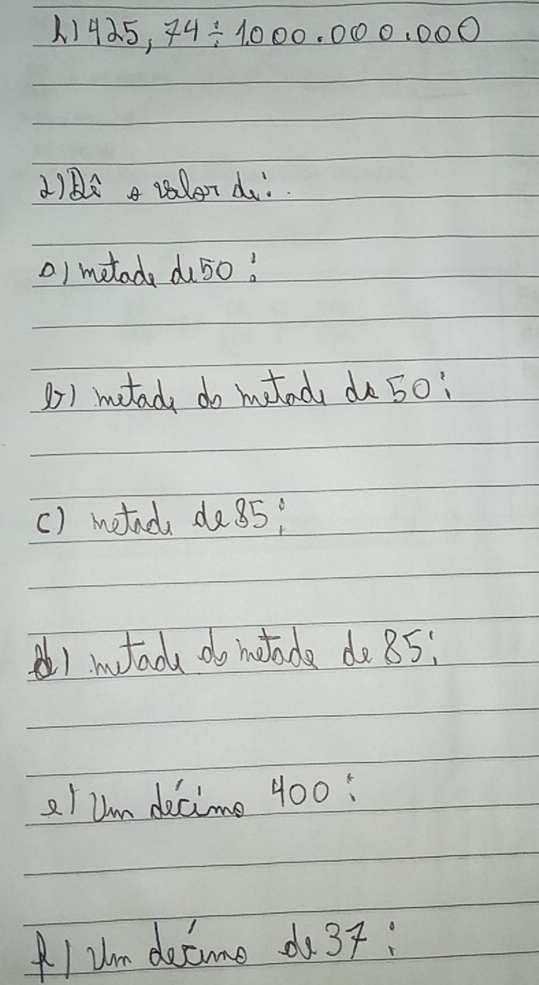 h) 425,74 ÷ 1.000.000.000
2) Dê o valor de:.
a) metade de 50:
b) metade da metade de 50:
c) metade de 85:
d) metade da metade de 85:
e) Um décimo 400:
f) Um décimo de 37: